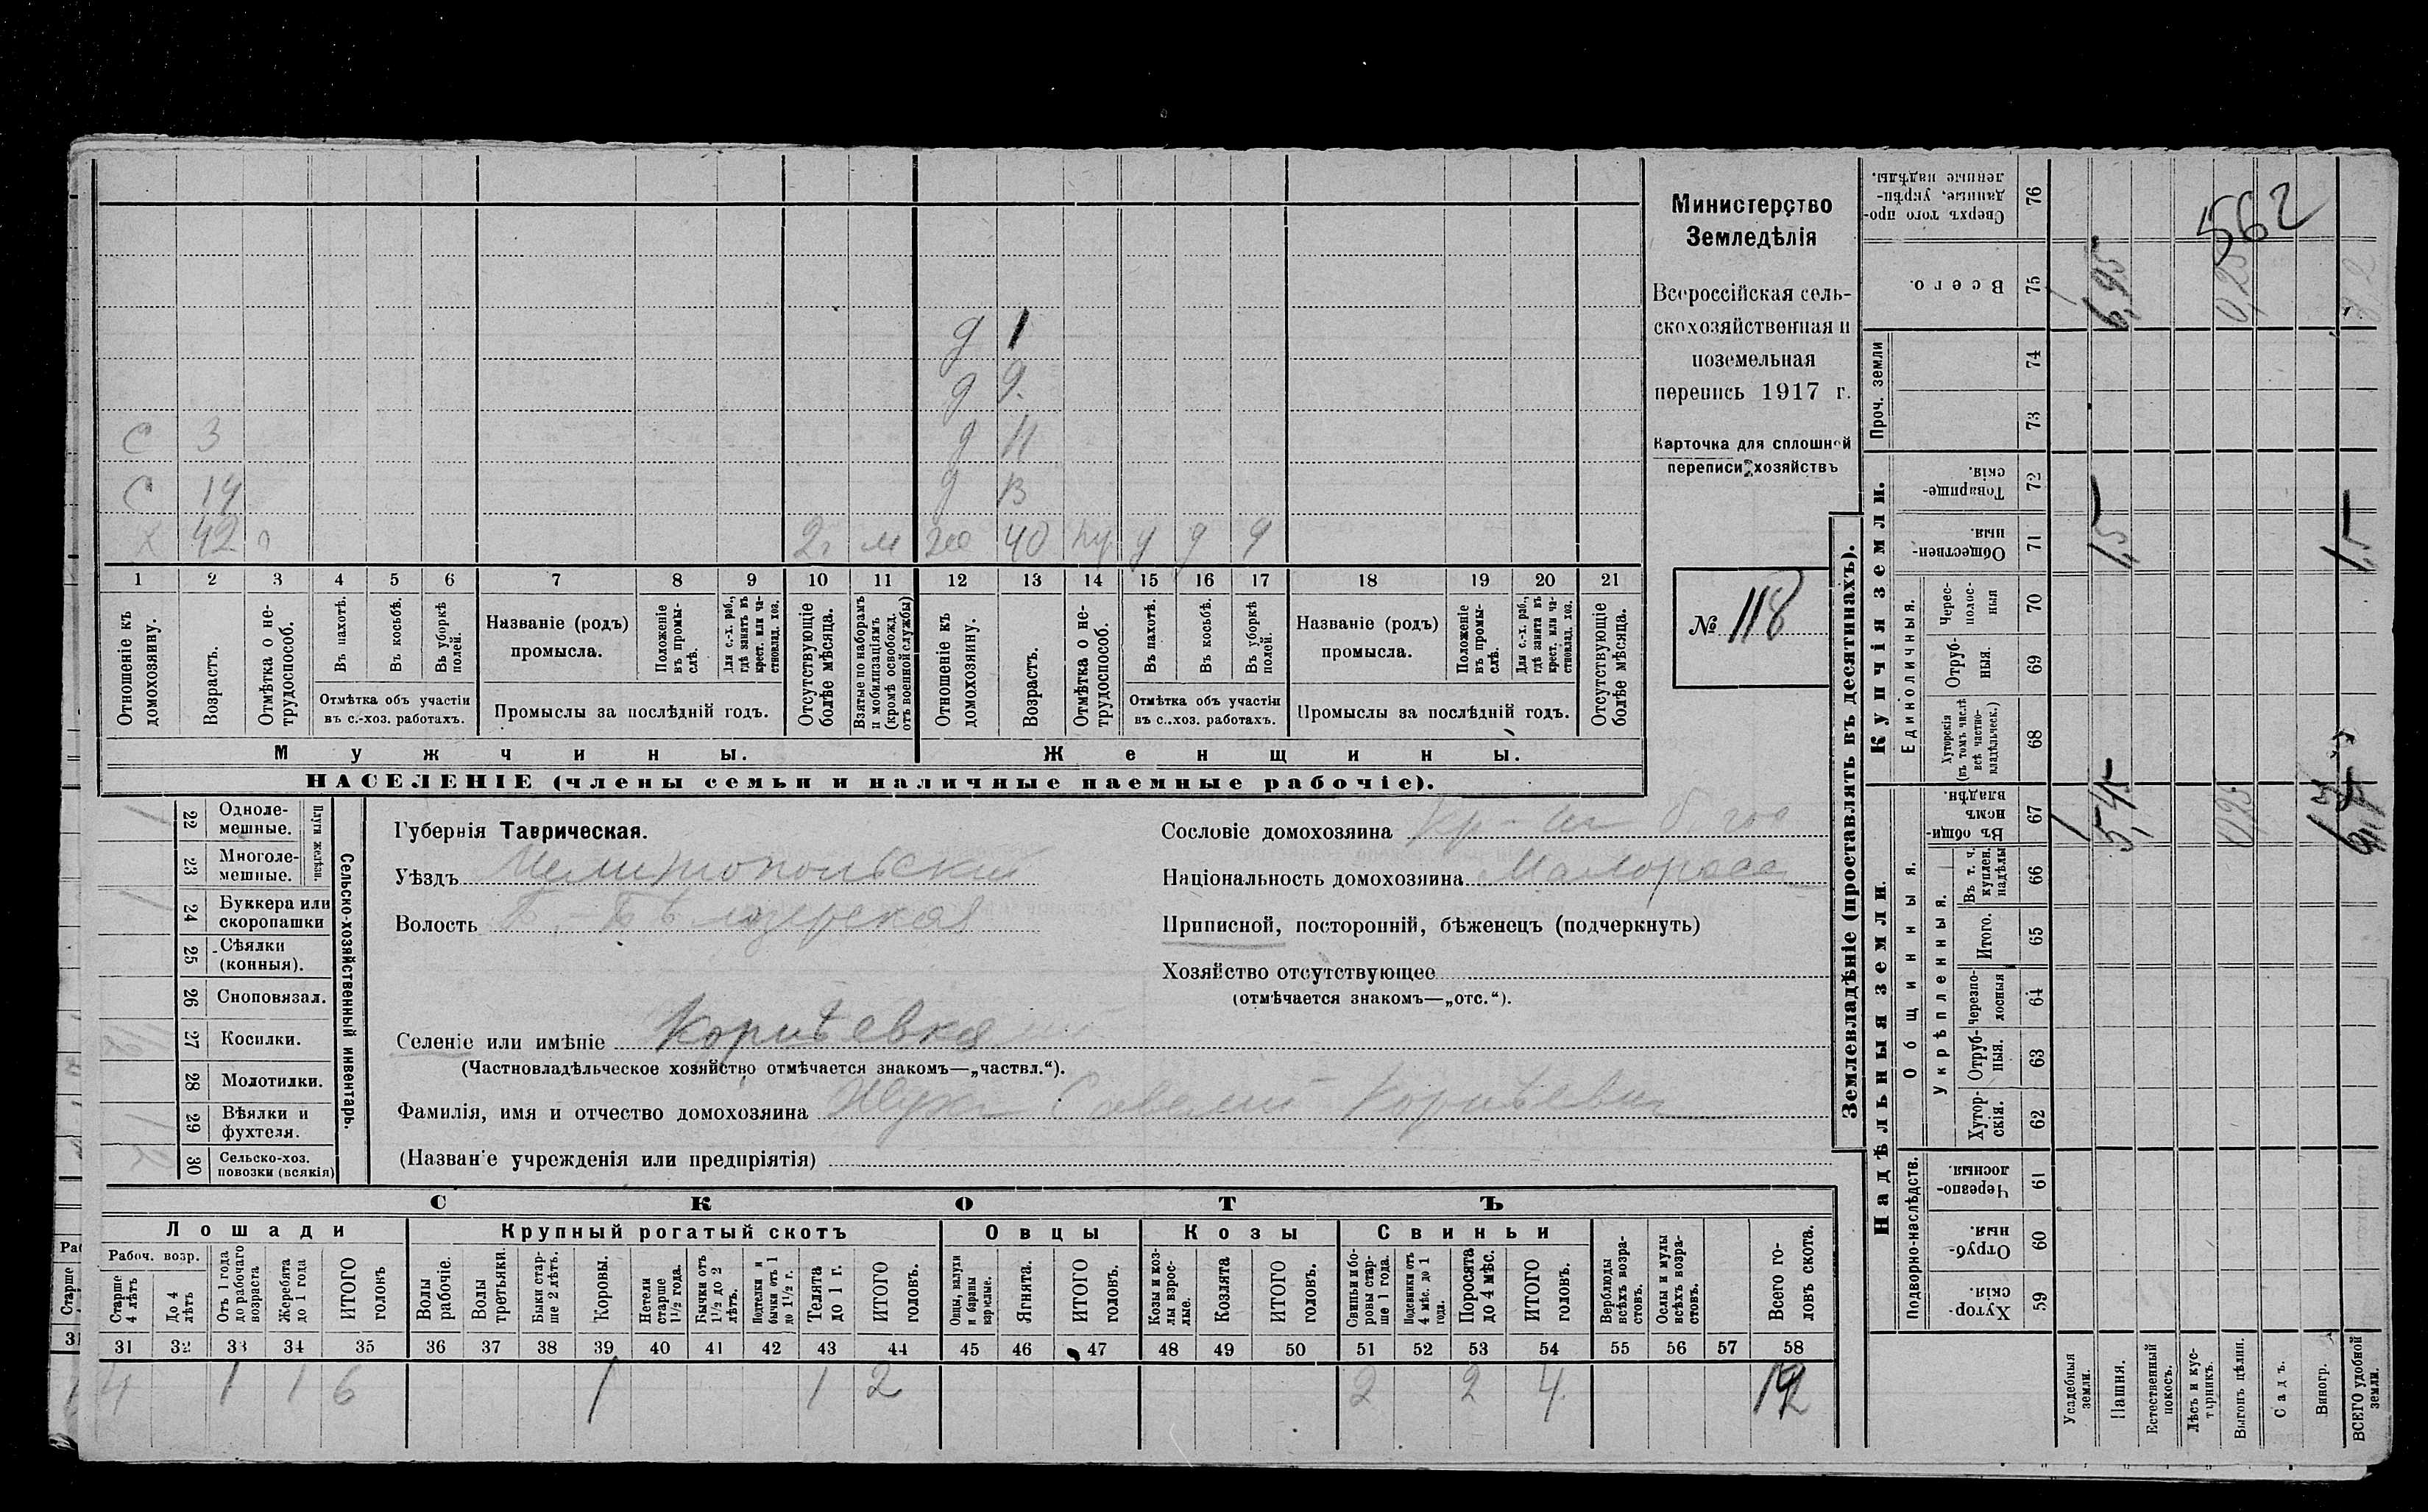 562
Министерство
Земледѣлія
Всероссійская сель-
скохозяйственная и
поземельная
перепись 1917 г.
Карточка для сплошной
переписи хозяйствъ
№ 118
д 1
д 9
С 3 д 11
С 14 д 13
Х 42 2 м ж 40
1 2 3 4 5 6 7 8 9 10 11 12 13 14 15 16 17 18 19 20 21
Отношеніе къ домохозяину.
Возрастъ.
Отмѣтка о не-трудоспособ.
Въ пахотѣ.
Въ косьбѣ.
Въ уборкѣ полей.
Отмѣтка объ участіи
въ с.-хоз. работахъ.
Названіе (родъ)
промысла.
Положеніе въ промы-слѣ.
Для с.-х. раб., гдѣ занятъ въ крест. или ча-стновлад. хоз.
Промыслы за послѣдній годъ.
Отсутствующіе болѣе мѣсяца.
Взятые по наборамъ и мобилизаціямъ (кромѣ освобожд. отъ военной службы)
Отношеніе къ домохозяину.
Возрастъ.
Отмѣтка о не-трудоспособ.
Въ пахотѣ.
Въ косьбѣ.
Въ уборкѣ полей.
Отмѣтка объ участіи
въ с.-хоз. работахъ.
Названіе (родъ)
промысла.
Положеніе въ промы-слѣ.
Для с.-х. раб., гдѣ занята въ крест. или ча-стновлад. хоз.
Промыслы за послѣдній годъ.
Отсутствующіе болѣе мѣсяца.
Мужчины. Женщины.
НАСЕЛЕНІЕ (члены семьи и наличные наемные рабочіе).
Сельско-хозяйственный инвентарь.
Плуги желѣзн.
22 Одноле-мешные.
23 Многоле-мешные.
24 Буккера или скоропашки
25 Сѣялки (конныя).
26 Сноповязал.
27 Косилки.
28 Молотилки.
29 Вѣялки и фухтеля.
30 Сельско-хоз. повозки (всякія)
Губернія Таврическая.
Уѣздъ Мелитопольскій
Волость Б.-Бѣлозерская
Селеніе или имѣніе Корнѣевка
(Частновладѣльческое хозяйство отмѣчается знакомъ—„частвл.“).
Фамилія, имя и отчество домохозяина Жукъ Савелій Корнѣевич
(Названіе учрежденія или предпріятія)
Сословіе домохозяина
Національность домохозяина Малоросс
Приписной, посторонній, бѣженецъ (подчеркнуть)
Хозяйство отсутствующее
(отмѣчается знакомъ—„отс.“).
СКОТЪ
Лошади Крупный рогатый скотъ Овцы Козы Свиньи
Рабоч. возр.
Старше 4 лѣтъ
До 4 лѣтъ
Отъ 1 года до рабочаго возраста
Жеребята до 1 года
ИТОГО головъ
Волы рабочіе.
Волы третьяки.
Быки стар-ше 2 лѣтъ.
Коровы.
Нетели старше 1½ года.
Бычки отъ 1½ до 2 лѣтъ.
Подтелки и бычки отъ 1 до 1½ г.
Телята до 1 г.
ИТОГО головъ.
Овцы, валухи и бараны взрослые.
Ягнята.
ИТОГО головъ.
Козы и коз-лы взрос-лые.
Козлята
ИТОГО головъ.
Свиньи и бо-ровы стар-ше 1 года.
Подсвинки отъ 4 мѣс. до 1 года.
Поросята до 4 мѣс.
ИТОГО головъ.
Верблюды всѣхъ возра-стовъ.
Ослы и мулы всѣхъ возра-стовъ.
Всего го-ловъ скота.
31 32 33 34 35 36 37 38 39 40 41 42 43 44 45 46 47 48 49 50 51 52 53 54 55 56 57 58
4 1 1 6 1 1 2 2 2 4 12
Землевладѣніе (проставлять въ десятинахъ).
Надѣльныя земли.
Купчія земли.
Проч. земли
Подворно-наслѣдств.
Общинныя.
Укрѣпленныя.
Единоличныя.
Хутор-скія. 59
Отруб-ныя 60
Черезпо-лосныя. 61
Хутор-скія. 62
Отруб-ныя. 63
Черезпо-лосныя 64
Итого. 65
Въ т. ч. куплен. надѣлы 66
Въ общи-номъ владѣн. 67
Хуторскія (въ томъ числѣ всѣ частно-владѣльческ.) 68
Отруб-ныя. 69
Черес-полос-ныя 70
Обществен-ныя. 71
Товарище-скія. 72
73
74
Всего. 75
Сверхъ того про-данные, укрѣп-ленные надѣлы. 76
Усадебныя земли.
Пашня. 5,45 1,5 6,95
Естественный покосъ.
Лѣсъ и кус-тарникъ.
Выгонъ цѣлин. 0,25 0,25
Садъ.
Виногр.
ВСЕГО удобной земли. 1,5